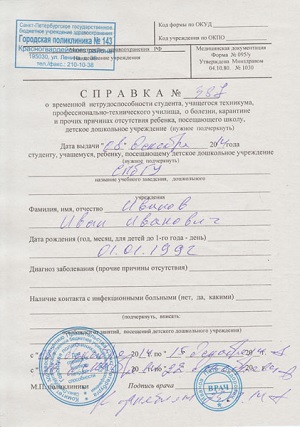 Санкт-Петербургское государственное
бюджетное учреждение здравоохранения
Городская поликлиника № 143
195030, ул.
тел./факс.: 210-10-38
Код формы по ОКУД
Код учреждения по ОКПО
Медицинская документация
Форма № 095/у
Утверждена Минздравом
04.10.80. № 1030
СПРАВКА № 387
о временной нетрудоспособности студента, учащегося техникума,
профессионально-технического училища, о болезни, карантине
и прочих причинах отсутствия ребенка, посещающего школу,
детское дошкольное учреждение (нужное подчеркнуть)
Дата выдачи «08» декабря 2014 года
студенту, учащемуся, ребенку, посещающему детское дошкольное учреждение
(нужное подчеркнуть)
СПбГУ
название учебного заведения, дошкольного
учреждения
Фамилия, имя, отчество Иванов
Иван Иванович
Дата рождения (год, месяц, для детей до 1-го года - день)
01.01.1992
Диагноз заболевания (прочие причины отсутствия)
Наличие контакта с инфекционными больными (нет, да, какими)
(подчеркнуть, указать)
с 2014 по 15 декабря 2014
с по 22
М.П. поликлиники Подпись врача
ВРАЧ